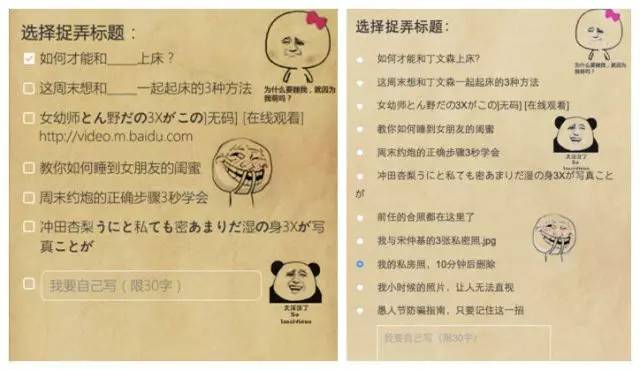 选择捉弄标题：
如何才能和____上床？
为什么要睡我，就因为
我萌吗？
这周末想和____一起起床的3种方法
女幼师とん野だの3Xがこの[无码] [在线观看]
http://video.m.baidu.com
教你如何睡到女朋友的闺蜜
周末约炮的正确步骤3秒学会
冲田杏梨うにと私ても密あまりだ湿の身3Xが写
真ことが
我要自己写（限30字）
太淫荡了
So
lascivious
选择捉弄标题：
如何才能和丁文森上床?
为什么要睡我，就因为
我萌吗？
这周末想和丁文森一起起床的3种方法
女幼师とん野だの3Xがこの[无码] [在线观看]
教你如何睡到女朋友的闺蜜
周末约炮的正确步骤3秒学会
冲田杏梨うにと私ても密あまりだ湿の身3Xが写真こと
が
前任的合照都在这里了
我与宋仲基的3张私密照.jpg
我的私房照，10分钟后删除
我小时候的照片，让人无法直视
愚人节防骗指南，只要记住这一招
我要自己写（限30字）